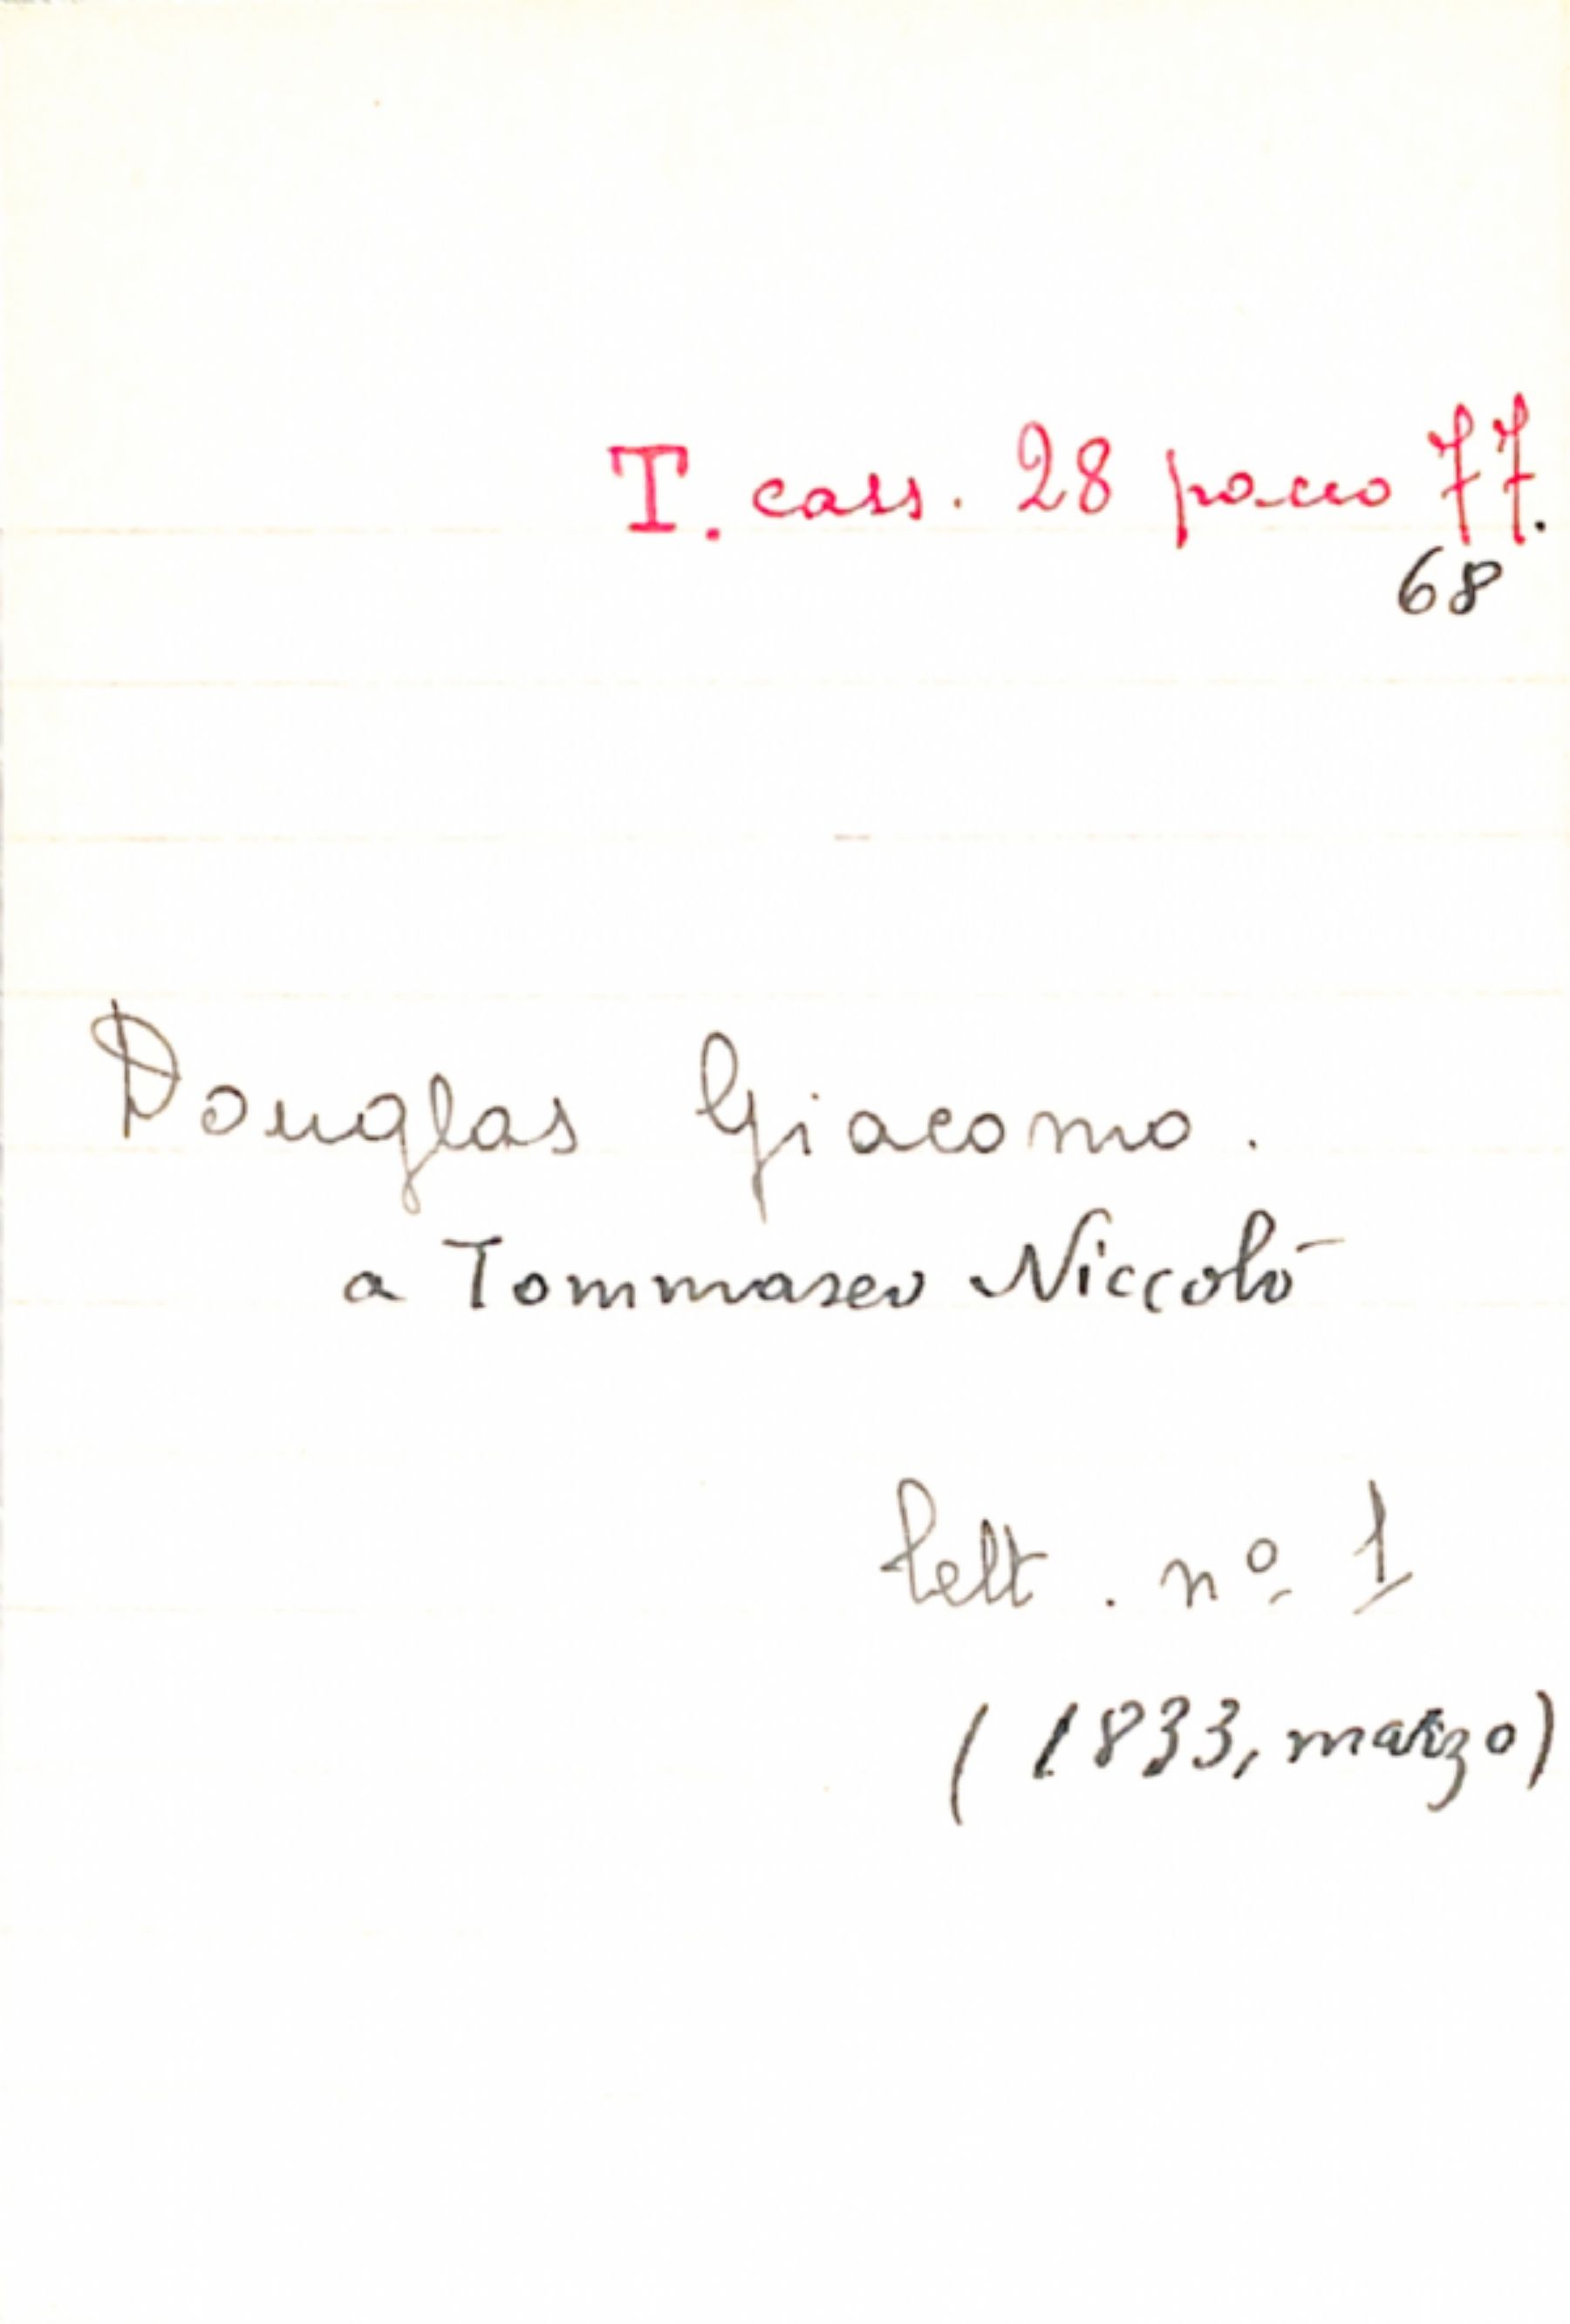 T. cass. 28 pacco 77.
68
Douglas Giacomo.
a Tommaseo Niccolò
lett. nº 1
(1833, marzo)